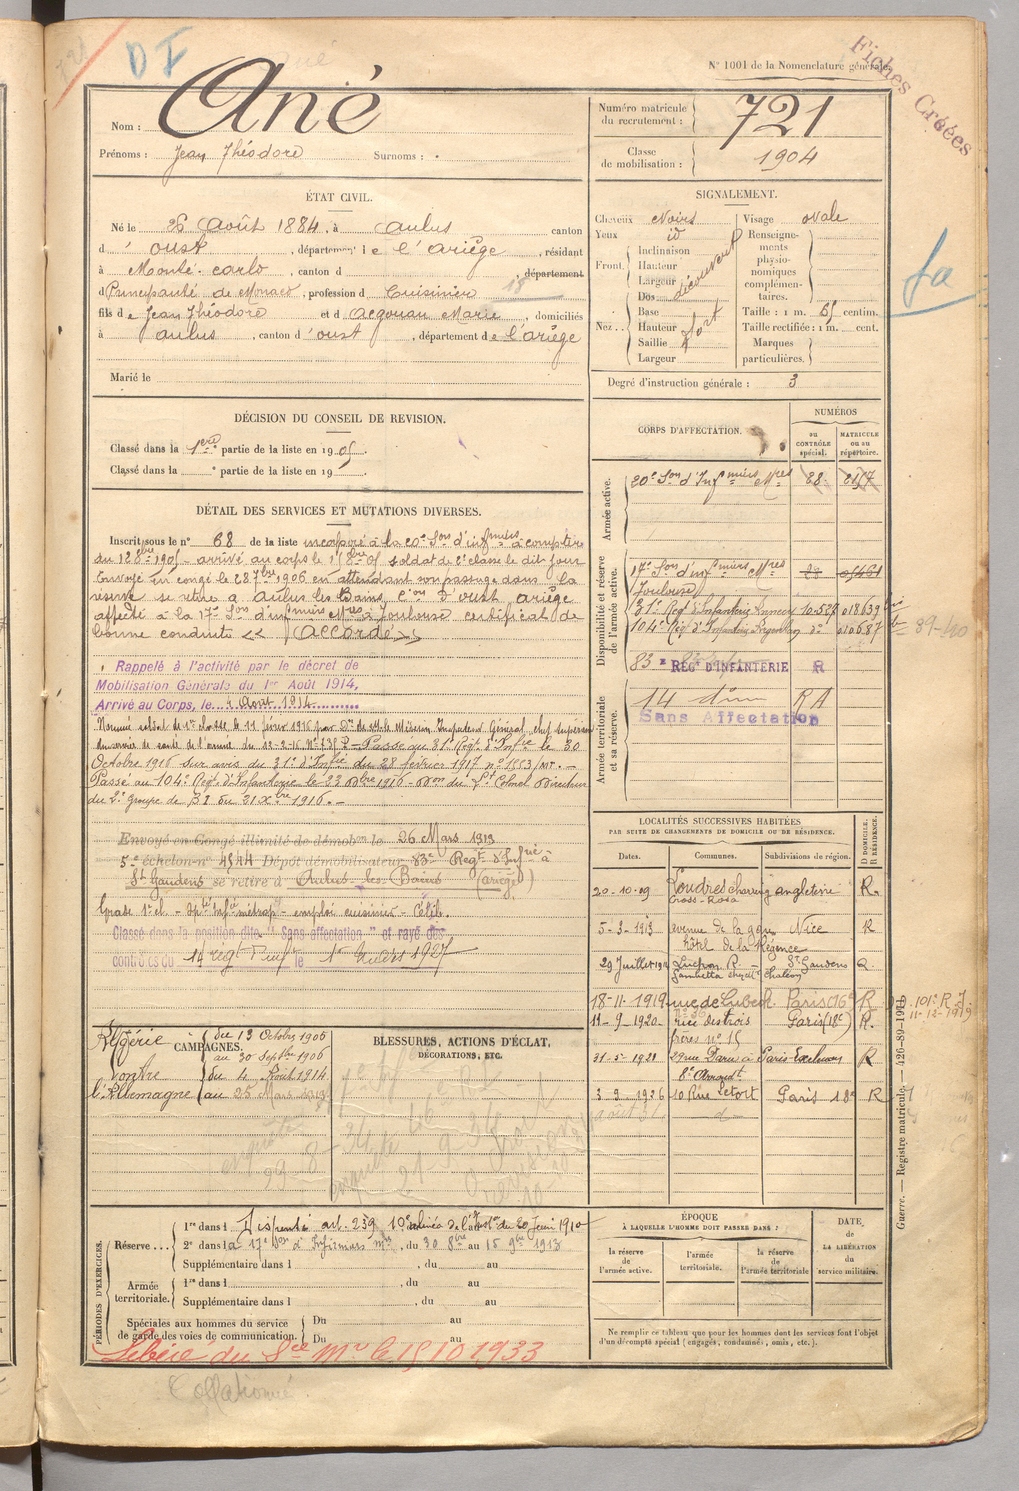 D I
N° 1001 de la Nomenclature générale.
Fiches Créées
Nom : Ané
Prénoms : Jean Théodore Surnoms : .
Numéro matricule du recrutement : 721
Classe de mobilisation : 1904
ÉTAT CIVIL.
Né le 26 Août 1884, à Aulus canton
d' Oust, département de l'Ariège, résidant
à Monté-Carlo, canton d , département
d Principauté de Monaco, profession d Cuisinier
fils de Jean Théodore et d' Acgouau Marie, domiciliés
à Aulus, canton d'Oust, département de l'Ariège
Marié le
SIGNALEMENT.
Cheveux Noirs
Yeux id
Front. Inclinaison Hauteur Largeur découvert
Nez. Dos Base Hauteur Saillie Largeur fort
Visage ovale
Renseignements physionomiques complémentaires.
Taille : 1 m. 65 centim.
Taille rectifiée : 1 m. cent.
Marques particulières.
Degré d'instruction générale : 3
DÉCISION DU CONSEIL DE REVISION.
Classé dans la 1ère partie de la liste en 1905.
Classé dans la ° partie de la liste en 19 .
CORPS D'AFFECTATION.
NUMÉROS
au CONTRÔLE spécial.
MATRICULE ou au répertoire.
Armée active.
20e Son d'Infmiers Mres 28 2157
Disponibilité et réserve de l'armée active.
17e Son d'infmiers Mres
Toulouse
31e Régt d'Infanterie Annecy 10.527 018639
104e Régt d'Infanterie Argentan do 010687
89-40
83e RÉGt D'INFANTERIE R
Armée territoriale et sa réserve.
14 RA
Sans Affectation
DÉTAIL DES SERVICES ET MUTATIONS DIVERSES.
Inscrit sous le n° 68 de la liste incorporé à la 20e Son d'infmiers à compter
du 12 8bre 1905 arrivé au corps le 8bre 05 soldat de 2e classe le dit jour
Envoyé en congé le 28 7bre 1906 en attendant son passage dans la
réserve se retire à Aulus les Bains Con d'Oust Ariège
affecté à la 17e Son d'infmiers Mres à Toulouse certificat de
bonne conduite << Accordé >>
Rappelé à l'activité par le décret de
Mobilisation Générale du 1er Août 1914,
Arrivé au Corps, le Août 1914
Nommé soldat de 1re classe le 11 février 1916 par Don de Mr le Médecin Inspecteur Général, chef supérieur
du service de santé de l'armée du Passé au 31e Régt d'Infie le 30
Octobre 1916 Sur avis du 31e d'Infie du 28 février 1917 n° 1553/MT. —
Passé au 104e Régt d'Infanterie le 22 1916 - Don du Lt Colonel Directeur
du 2e groupe de du 21 Xbre 1916. —
Envoyé en Congé illimité de démobon le 26 Mars 1919
5e échelon n° 4544 Dépôt démobilisateur 83e Régt d'Infrie à
St Gaudens se retire à Aulus-les-Bains (ariège)
Grade 1re cl - emploi cuisinier - Célib.
Classé dans la position dite "Sans affectation" et rayé des
contrôles du 14e régt d'inf le 1927
LOCALITÉS SUCCESSIVES HABITÉES
PAR SUITE DE CHANGEMENTS DE DOMICILE OU DE RÉSIDENCE.
Dates. Communes. Subdivisions de région. D DOMICILE. R RÉSIDENCE.
20-10-09 Londres charing Cross-Road angleterre R.
5-3-1913 avenue de la gare hôtel de la Régence Nice R
29 Juillet Luchon R. Gambetta chez Mr St Gaudens R.
18-11-1919 rue de Lubeck Paris (16e) R
101e R I. 11-12-1919
11-9-1920 rue des trois frères n° 15 Paris (18e) R.
31-5-1921 29 rue Daru à Paris-Exelmans R
8e Arrondt
3-9-1926 10 Rue Letort Paris 18e R
CAMPAGNES.
Algérie du 13 Octobre 1905
au 30 Septbre 1906
Contre l'Allemagne du 4 Août 1914
au 25 Mars 1919
BLESSURES, ACTIONS D'ÉCLAT, DÉCORATIONS, ETC.
PÉRIODES D'EXERCICES.
Réserve...
1re dans l Dispensé art. 239 10e alinéa de l'Instr du 20 Juin 1910
2e dans la 17e Son d'Infirmiers mres, du 30 8bre au 15 9bre 1913
Supplémentaire dans l , du au
Armée territoriale.
1re dans l , du au
Supplémentaire dans l , du au
Spéciales aux hommes du service de garde des voies de communication.
Du au
Du au
Libéré du Sce Mre le 15 10 1933
ÉPOQUE
À LAQUELLE L'HOMME DOIT PASSER DANS :
la réserve de l'armée active.
l'armée territoriale.
la réserve de l'armée territoriale
DATE, DE LA LIBÉRATION DU service militaire.
Ne remplir ce tableau que pour les hommes dont les services font l'objet
d'un décompte spécial (engagés, condamnés, omis, etc.).
Guerre. — Registre matricule. — 426-89-1911
Collationné